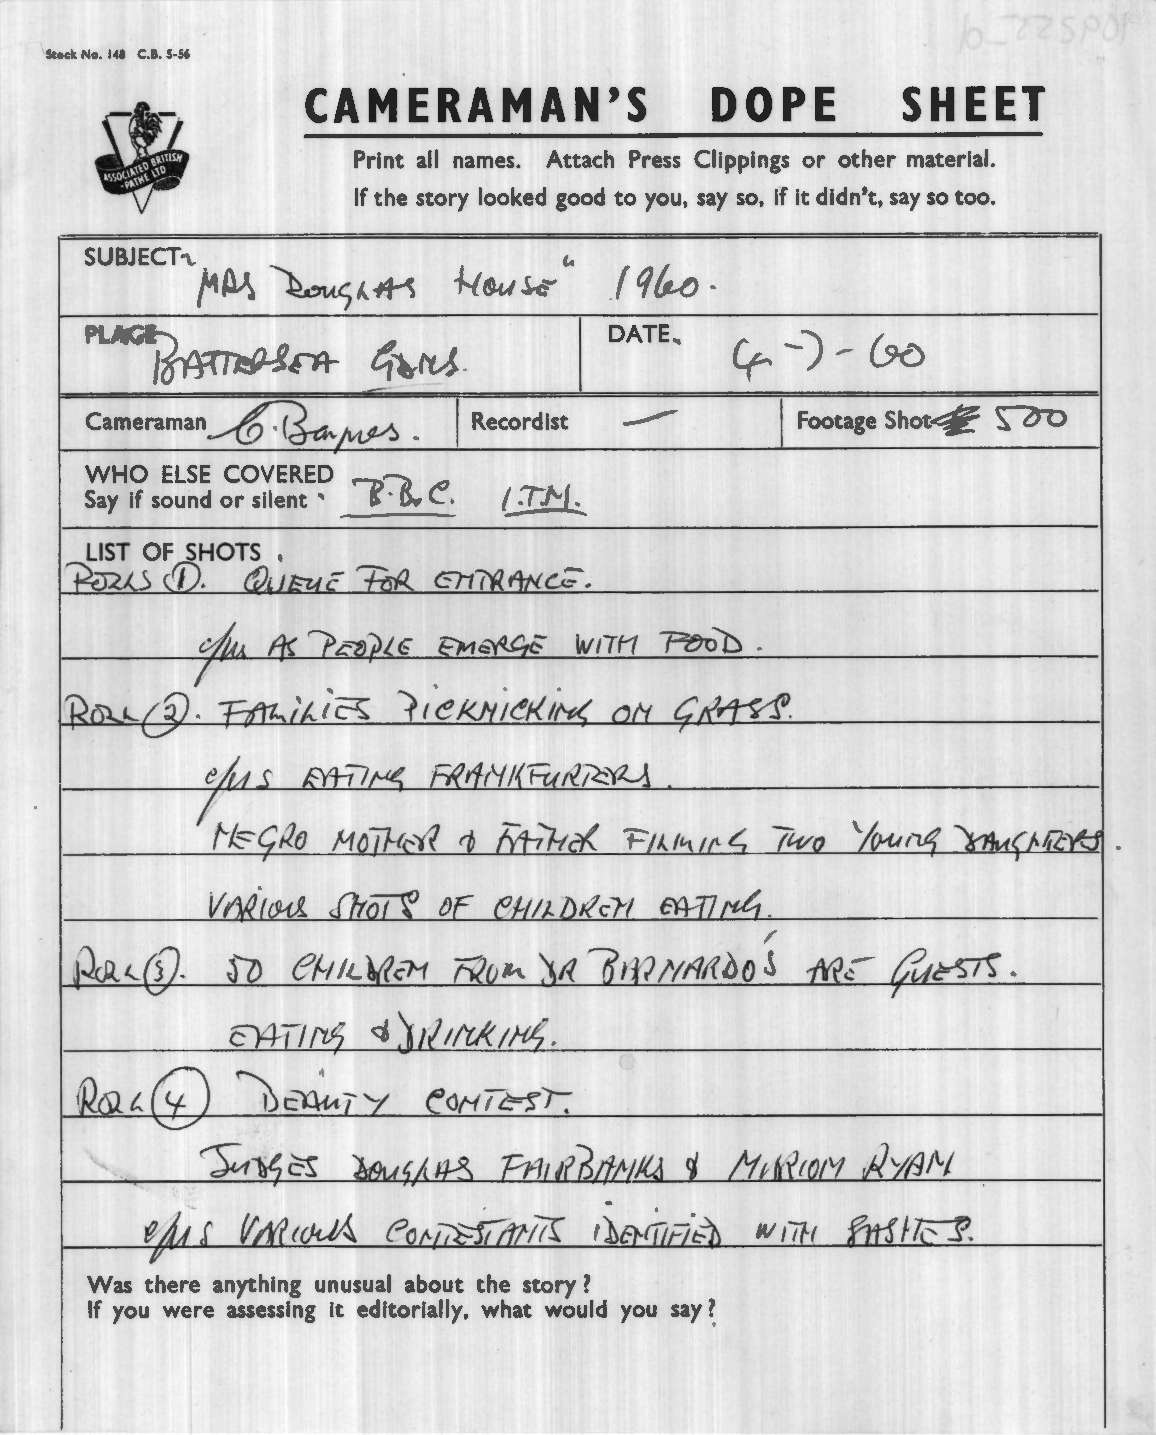 Stock No. 148 C.B. 5-56
CAMERAMAN'S DOPE SHEET
ASSOCIATED BRITISH
-PATHE LTD
Print all names. Attach Press Clippings or other material.
If the story looked good to you, say so, if it didn't, say so too.
SUBJECT
DOUGLAS HOUSE" 1960.
PLACE
BATTERSEA GDNS.
DATE.
4-7-60
Cameraman C. Barnes.
Recordist —
Footage Shot 500
WHO ELSE COVERED
Say if sound or silent
B.B.C. I.T.N.
LIST OF SHOTS
(1). QUEUE FOR ENTRANCE.
AS PEOPLE EMERGE WITH FOOD.
ROLL (2). FAMILIES PICKNICKING ON GRASS.
c/us EATING FRANKFURTERS.
NEGRO MOTHER & FATHER FILMING TWO YOUNG DAUGHTERS.
VARIOUS SHOTS OF CHILDREN EATING.
ROLL (3). 50 CHILDREN FROM DR BARNARDO'S ARE GUESTS.
EATING & DRINKING.
ROLL (4) BEAUTY CONTEST.
JUDGES DOUGLAS FAIRBANKS & MARION RYAN
c/us VARIOUS CONTESTANTS IDENTIFIED WITH SASHES.
Was there anything unusual about the story?
If you were assessing it editorially, what would you say?